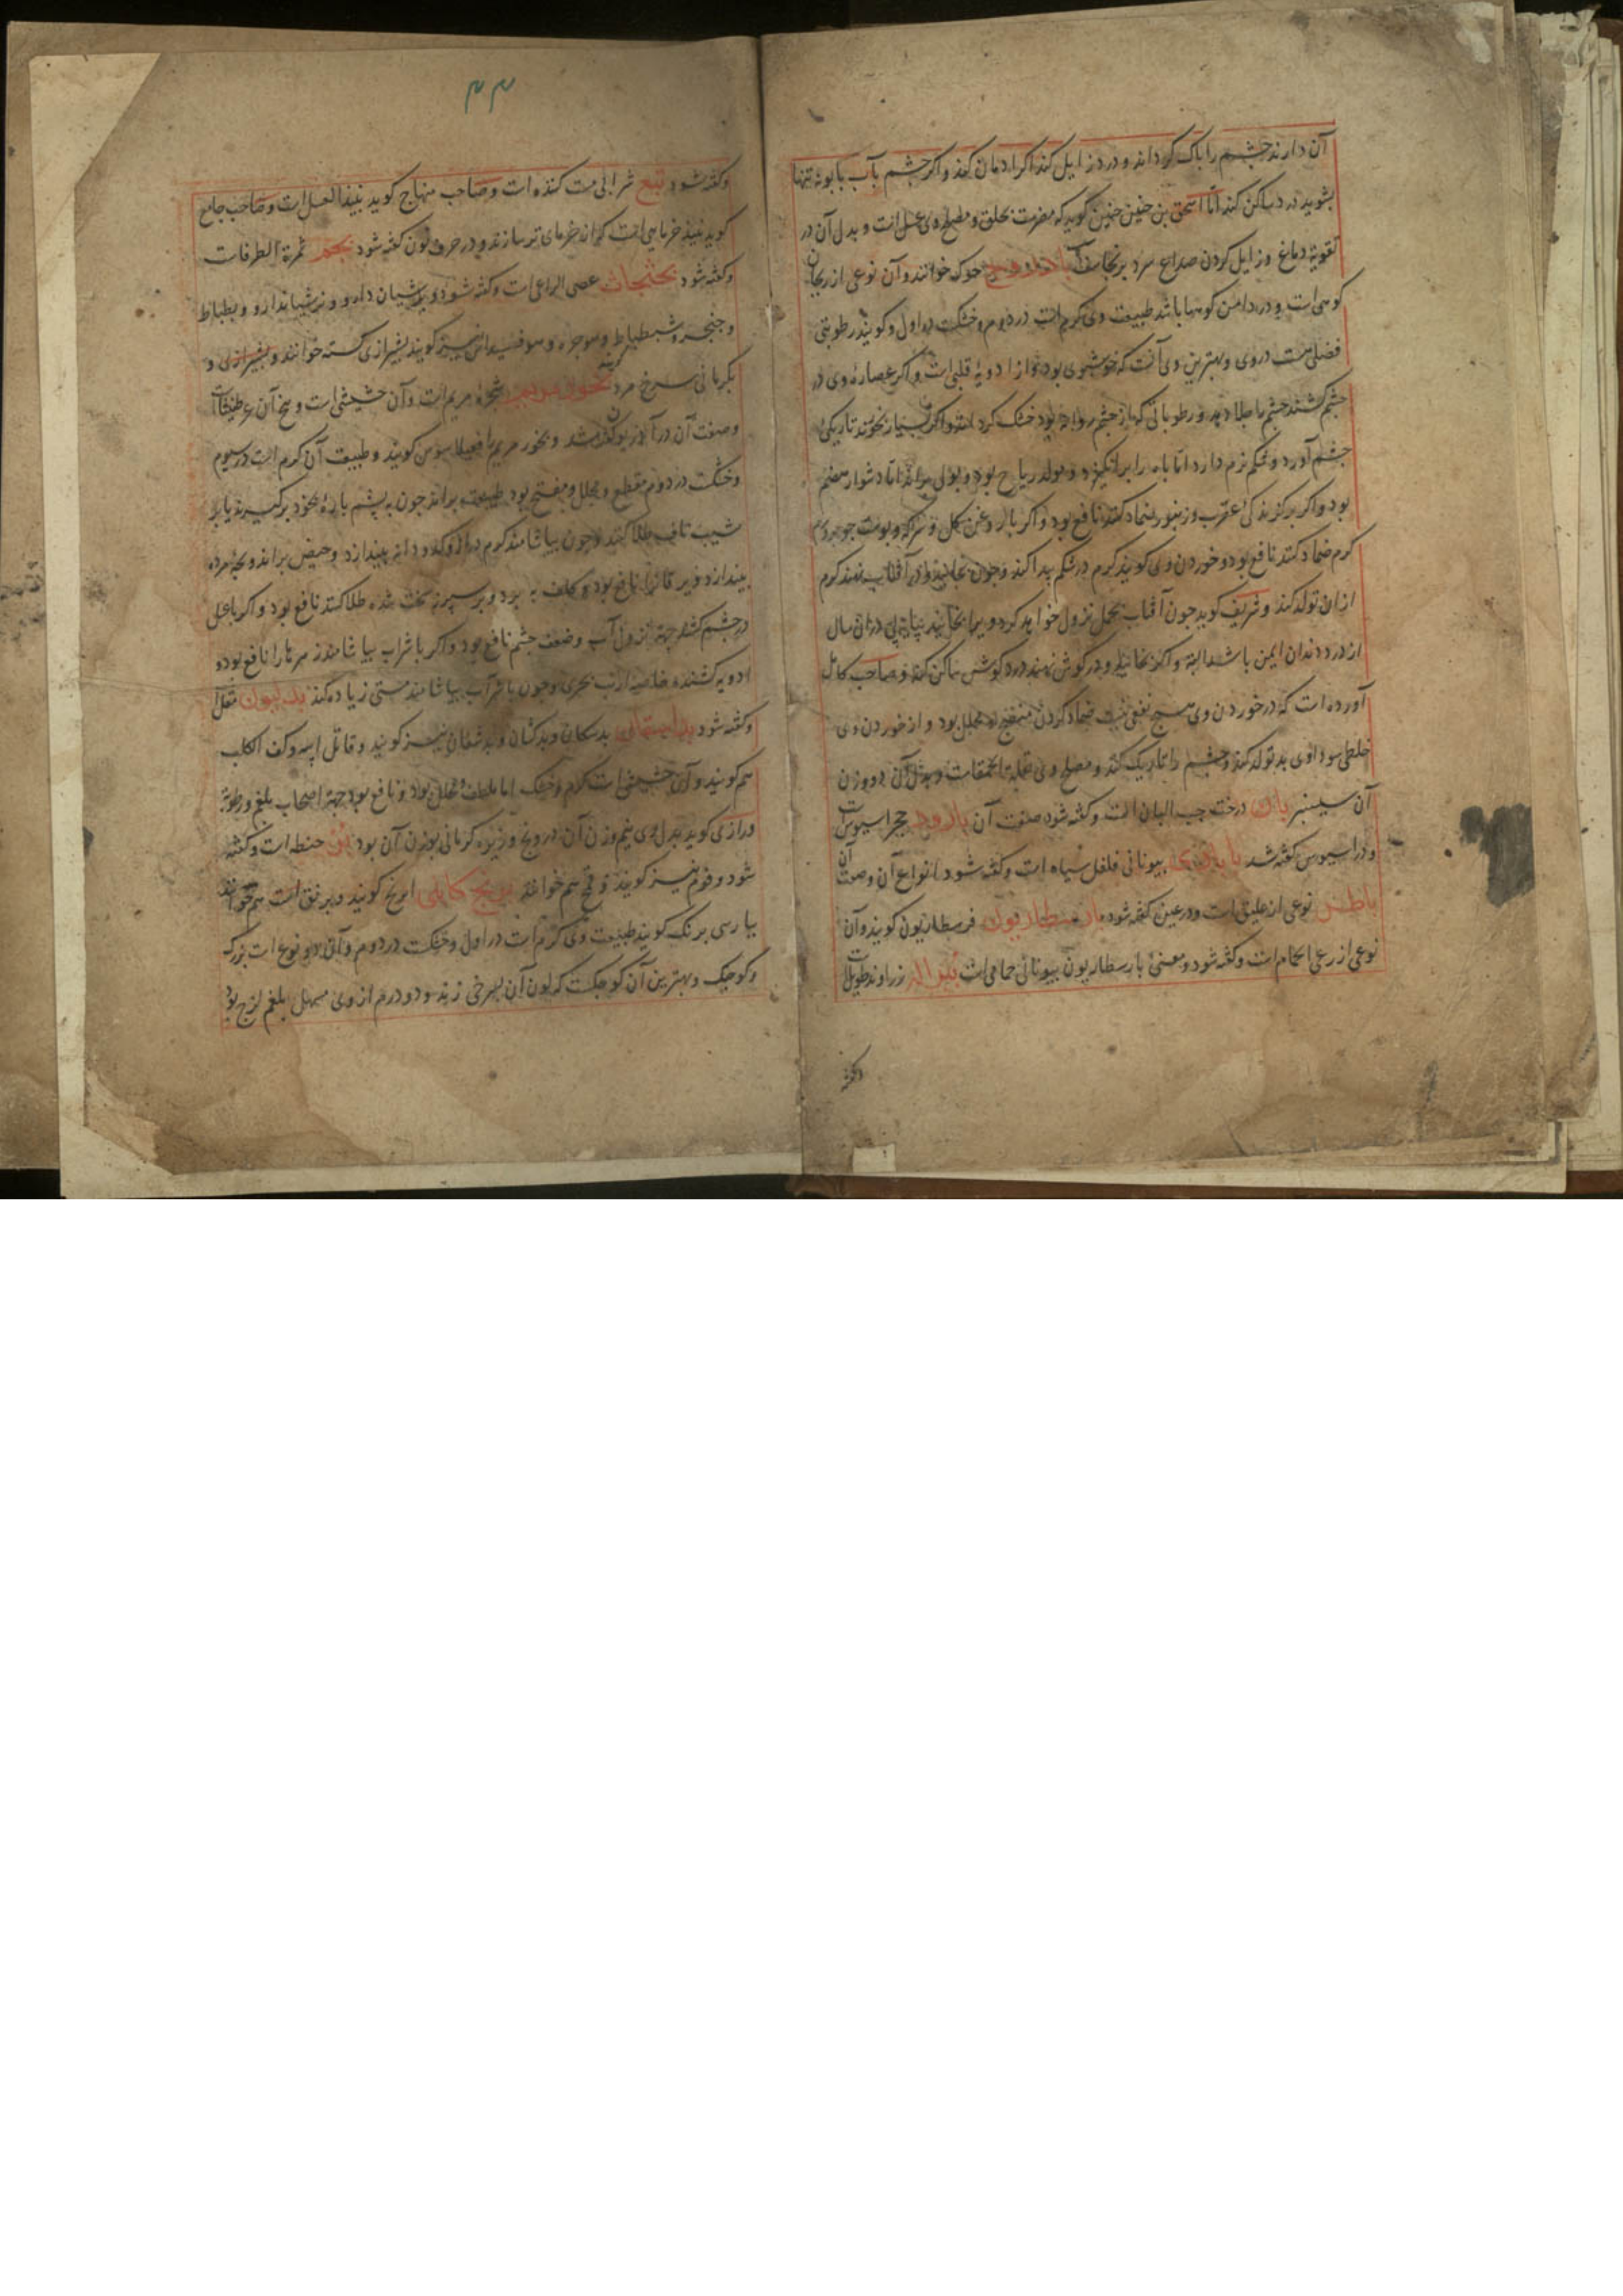 آن دارند چشم را پاک کرداند و درد زایل کند اکر ادمان کنند و اکر چشم بآب بابونه تنها
بشویند درد ساکن کند اما اسحق بن حنین کوید که مضرست بحلق و مصلح وی عسل است و بدل آن در
تقویة دماغ و زایل کردن صداع سرد برنجاسف است بادروج حوک خوانند و آن نوعی از ریحان
کوهی است و در دامن کوهها باشد طبیعت وی کرم است در دوم و خشکست در اول و کویند رطوبتی
فضلی هست در وی و بهترین وی آنست که خوشبوی بود و از ادویهٔ قلبی است و اکر عصارهٔ وی در
چشم کشند چشم را جلا دهد و رطوباتی که از چشم روانه بود خشک کرداند و اکر بسیار بخورند تاریکی
چشم آورد و شکم نرم دارد اما باه را برانکیزد و مولد ریاح بود و بول براند اما دشوار هضم
بود و اکر بر کزندکی عقرب و زنبور ضماد کنند نافع بود و اکر با روغن کل و سرکه
کرم ضماد کنند نافع بود و خوردن وی کویند کرم در شکم پیدا کند و چون بخایند و در آفتاب نهند کرم
ازان تولد کند و شریف کوید چون آفتاب بحمل نزول خواهد کرد ویرا بخایند در آن سال
از درد دندان ایمن باشد البته و اکر بخایند و در کوش نهند درد کوش ساکن کند و صاحب کامل
آورده است که در خوردن وی هیچ نفعی نیست ضماد کردن منضج و محلل بود و از خوردن وی
خلطی سوداوی بد تولد کند و چشم را تاریک کند و مصلح وی بقلة الحمقاست و بدل آن دو وزن
آن سیسنبر بان درخت حب البان است و کفته شود صفت آن بارود حجر اسیوس است
و در اسیوس کفته شد بیونانی فلفل سیاه است و کفته شود انواع آن وصفت آن
باطس نوعی از علیق است و در عین کفته شود بارسطاریون فرسطاریون کویند و آن
نوعی از رعی الحمام است و کفته شود و معنی بارسطاریون بیونانی حمامی است زراوند طویل است
وکفته
۴۳
وکفته شود بتع شرابی مست کننده است و صاحب منهاج کوید نبیذ العسل است و صاحب جامع
کوید نبیذ خرمایی است که از خرمای تر سازند و در حرف نون کفته شود بجم ثمرة الطرفاست
و کفته شود عصی الراعی است و کفته شود و برشیان دارو و نرشیاندارو و بطباط
و شبطباط و نیز کویند بشیرازی کسته خوانند و بشیرازی و
بکرمانی سرخ مرد کویند بخور مریم شجرهٔ مریم است و آن حشیشی است و بیخ آن عرطنیثاست
وصفت آن در آذربون کفته شد و بخور مریم را کویند و طبیعت آن کرم است در سیوم
و خشکست در دوم مقطع و محلل و مفتح بود طبیعت براند چون به پشم پاره بخود بر کیرند یا بر
شیب ناف طلا کنند و چون بیاشامند کرم دراز و کدو دانه بیندازد و حیض براند و بچهٔ مرده
بیندازد و یرقان را نافع بود و کلف ببرد و بر سپرز سخت شده طلا کنند نافع بود و اکر با عسل
در چشم کشند جهة نزول آب و ضعف چشم نافع بود و اکر با شراب بیاشامند زهرها را نافع بود و
ادویه کشنده خاصه ارنب بحری و چون با شراب بیاشامند مستی زیاده کند بدلیون مقل است
و کفته شود بداسقان بدسکان و بدکشان و بدشغان نیز کویند و قاتل ابیه و کف الکلب
هم کویند و آن حشیشی است کرم و خشک اما ملطف و محلل بود و نافع بود جهة اصحاب بلغم و رطوبة
و رازی کوید بدل وی نیم وزن آن درونج و زیره کرمانی بوزن آن بود بر حنطه است و کفته
شود و فوم نیز کویند و قمح هم خوانند برنج کابلی ابرنج کویند و برنق است هم خوانند
بپارسی برنک کویند طبیعت وی کرم است در اول و خشکست در دوم و آن دو نوع است بزرک
و کوچک و بهترین آن کوچکست که لون آن بسرخی زند و دو درم از وی مسهل بلغم لزج بود